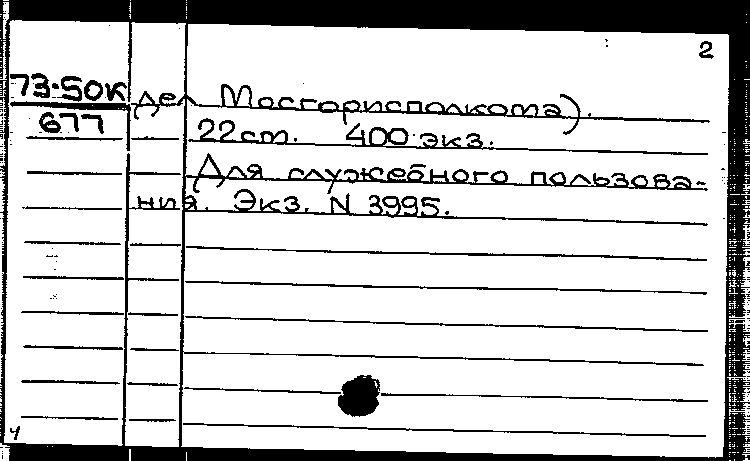 2
73-50К дел Мосгорисполкома).
677 22 см. 400 экз.
Для служебного пользова-
ния. Экз. N 3995.
4